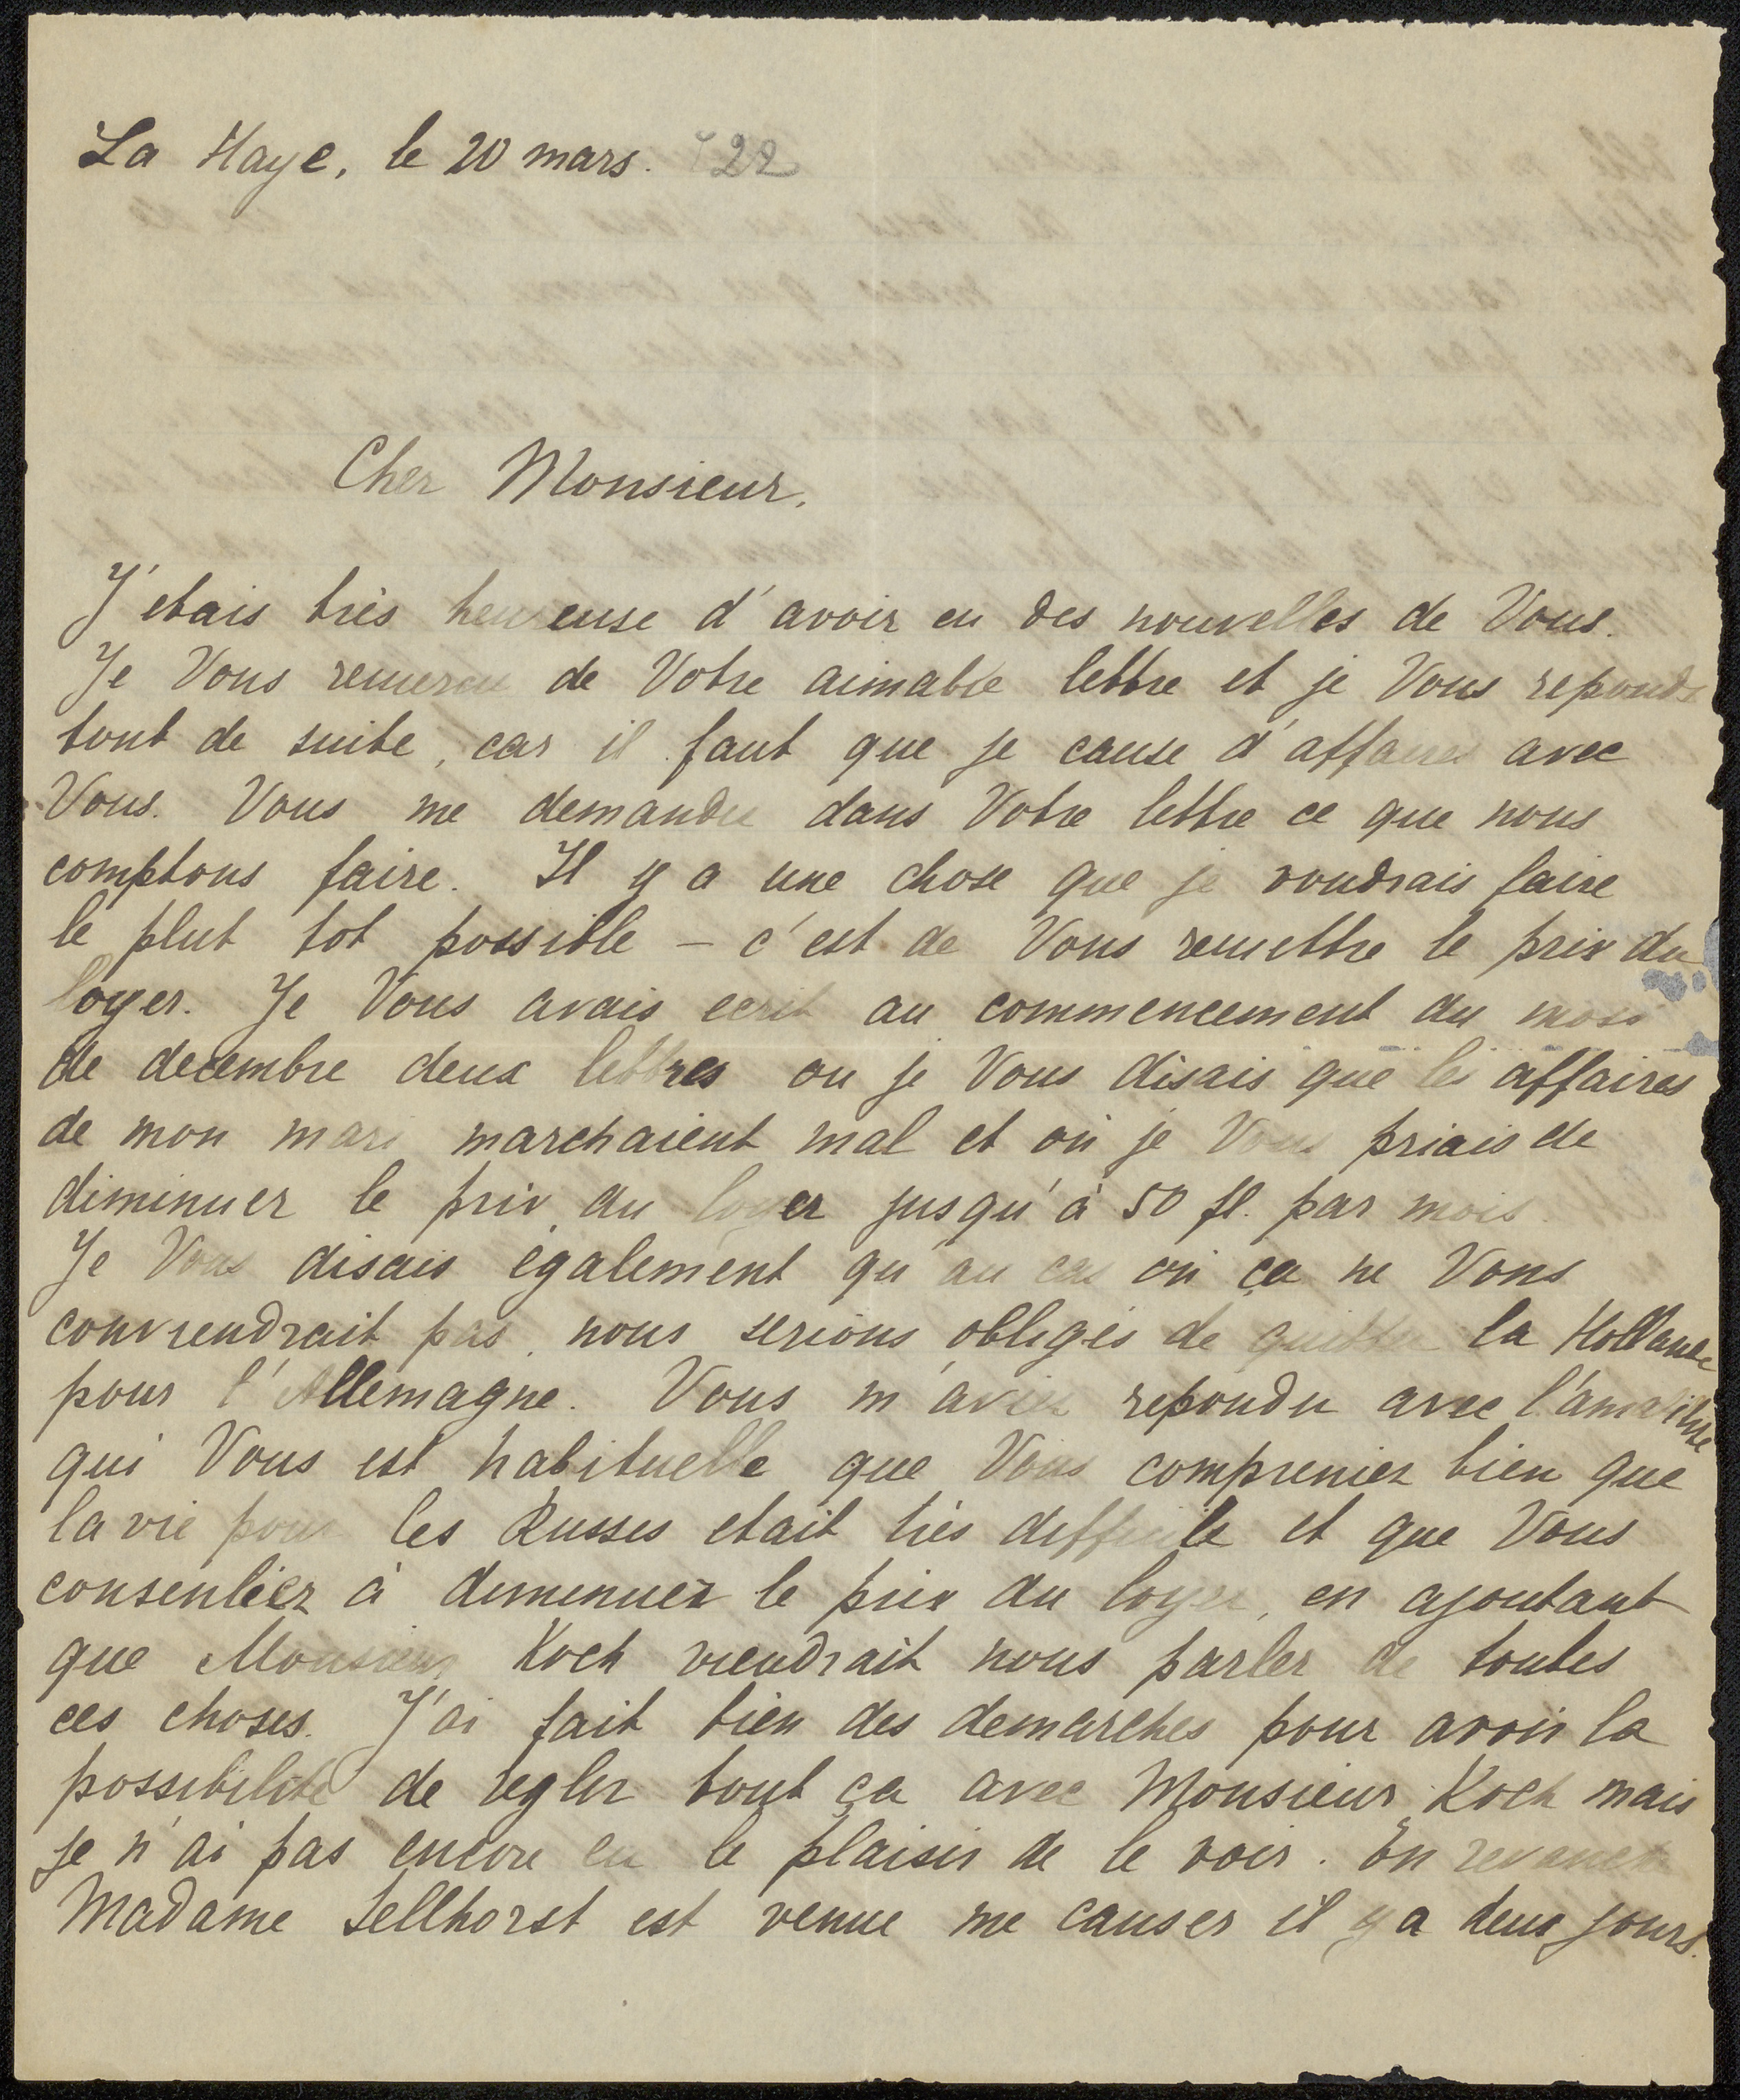 La Haye, le 20 mars. '22
Cher Monsieur,
J'etais très heureuse d'avoir eu des nouvelles de Vous.
Je Vous remercie de Votre aimable lettre et je Vous reponds
tout de suite, car il faut que je cause d'affaires avec
Vous. Vous me demandez dans Votre lettre ce que nous
comptons faire. Il y a une chose que je voudrais faire
le plut tot possible – c'est de Vous remettre le prix du
loyer. Je Vous avais ecrit au commencement du mois
de decembre deux lettres ou je Vous disais que les affaires
de mon mari marchaient mal et où je Vous priais de
diminuer le prix du loyer jusqu'à 50 fl. par mois.
Je Vous disais également qu'au cas où ça ne Vous
conviendrait pas, nous serions obligés de quitter la Hollande
pour l'Allemagne. Vous m'aviez repondu avec
qui Vous est habituelle que Vous compreniez bien que
la vie pour les Russes etait très difficile et que Vous
consentiez à diminuer le prix du loyer, en ajoutant
que Monsieur Koch viendrait nous parler de toutes
ces choses. J'ai fait bien des demarches pour avoir la
possibilité de regler tout ça avec Monsieur Koch mais
je n'ai pas encore eu le plaisir de le voir. En revanche
Madame Sellhorst est venue me causer il y a deux jours.